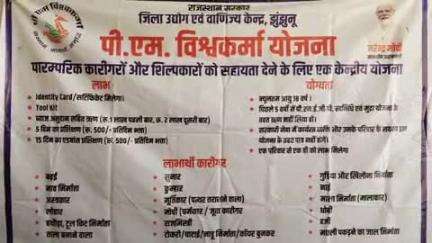 राजस्थान सरकार
जिला उद्योग एवं वाणिज्य केन्द्र, झुंझुनू
पी.एम. विश्वकर्मा योजना
पारम्परिक कारीगरों और शिल्पकारों को सहायता देने के लिए एक केन्द्रीय योजना
लाभ
Identity Card/सर्टिफिकेट मिलेगा।
Tool Kit
ब्याज अनुदान सहित ऋण (रु. 1 लाख पहली बार, रु. 2 लाख दूसरी बार)
5 दिन का प्रशिक्षण (रु. 500/- प्रतिदिन भत्ता)
15 दिन का एडवांस प्रशिक्षण (रु. 500/- प्रतिदिन भत्ता)
योग्यता
न्यूनतम आयु 18 वर्ष।
पिछले 5 वर्षों में पी.एम.ई.जी.पी., स्वनिधि एवं मुद्रा योजना के
तहत ऋण नहीं लिया हो।
सरकारी सेवा में कार्यरत व्यक्ति और उनके परिवार के सदस्य इस
योजना के तहत पात्र नहीं होंगे।
एक परिवार से एक ही को लाभ मिलेगा
लाभार्थी कारीगर
बढ़ई
नाव निर्माता
अस्त्रकार
लोहार
हथौड़ा, टूल किट निर्माता
ताला बनाने वाला
सुनार
कुम्हार
मूर्तिकार (पत्थर तराशने वाला)
मोची (चर्मकार / जूता कारीगर
राजमिस्त्री
टोकरी/चटाई/झाडू निर्माता/कॉयर बुनकर
गुड़िया और खिलौना निर्माता
नाई
माला निर्माता (मालाकार)
धोबी
दर्जी
मछली पकड़ने का जाल निर्माता